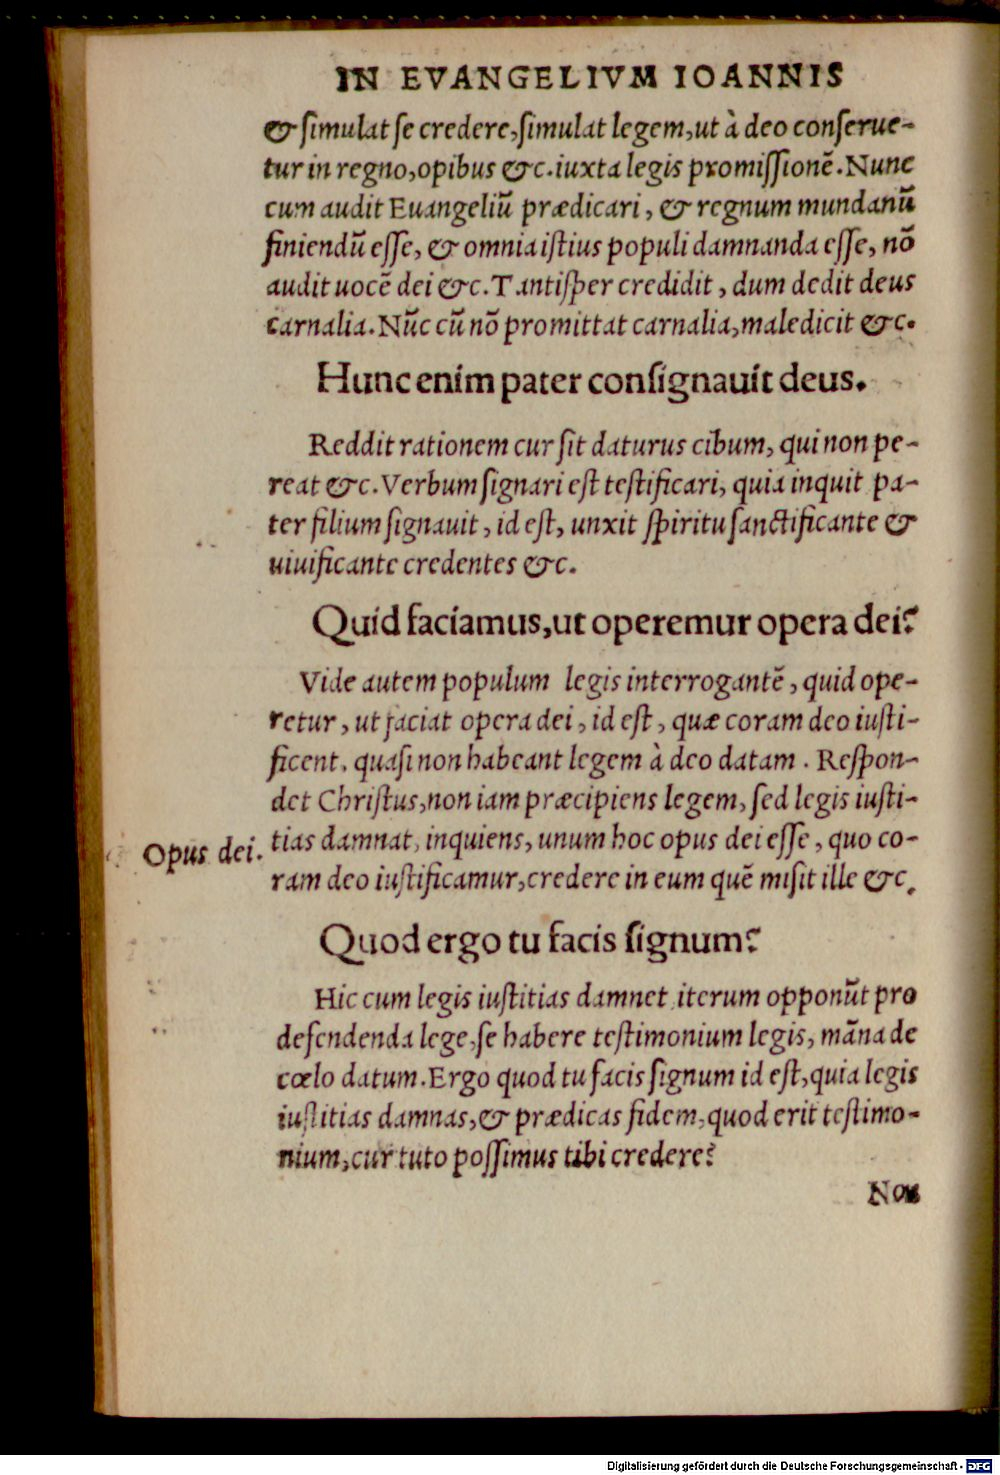 IN EVANGELIVM IOANNIS
& simulat se credere, simulat legem, ut à deo conserue-
tur in regno, opibus &c. iuxta legis promissionē. Nunc
cum audit Euangeliū prædicari, & regnum mundanū
finiendū esse, & omnia istius populi damnanda esse, nō
audit uocē dei &c. Tantisper credidit, dum dedit deus
carnalia. Nūc cū nō promittat carnalia, maledicit &c.
Hunc enim pater consignauit deus.
Reddit rationem cur sit daturus cibum, qui non pe-
reat &c. Verbum signari est testificari, quia inquit pa-
ter filium signauit, id est, unxit spiritu sanctificante &
uiuificante credentes &c.
Quid faciamus, ut operemur opera dei?
Vide autem populum legis interrogantē, quid ope-
retur, ut faciat opera dei, id est, quæ coram deo iusti-
ficent, quasi non habeant legem à deo datam. Respon-
det Christus, non iam præcipiens legem, sed legis iusti-
Opus dei. tias damnat, inquiens, unum hoc opus dei esse, quo co-
ram deo iustificamur, credere in eum quē misit ille &c.
Quod ergo tu facis signum?
Hic cum legis iustitias damnet iterum opponūt pro
defendenda lege, se habere testimonium legis, māna de
cœlo datum. Ergo quod tu facis signum id est, quia legis
iustitias damnas, & prædicas fidem, quod erit testimo-
nium, cur tuto possimus tibi credere?
Digitalisierung gefördert durch die Deutsche Forschungsgemeinschaft - DFG